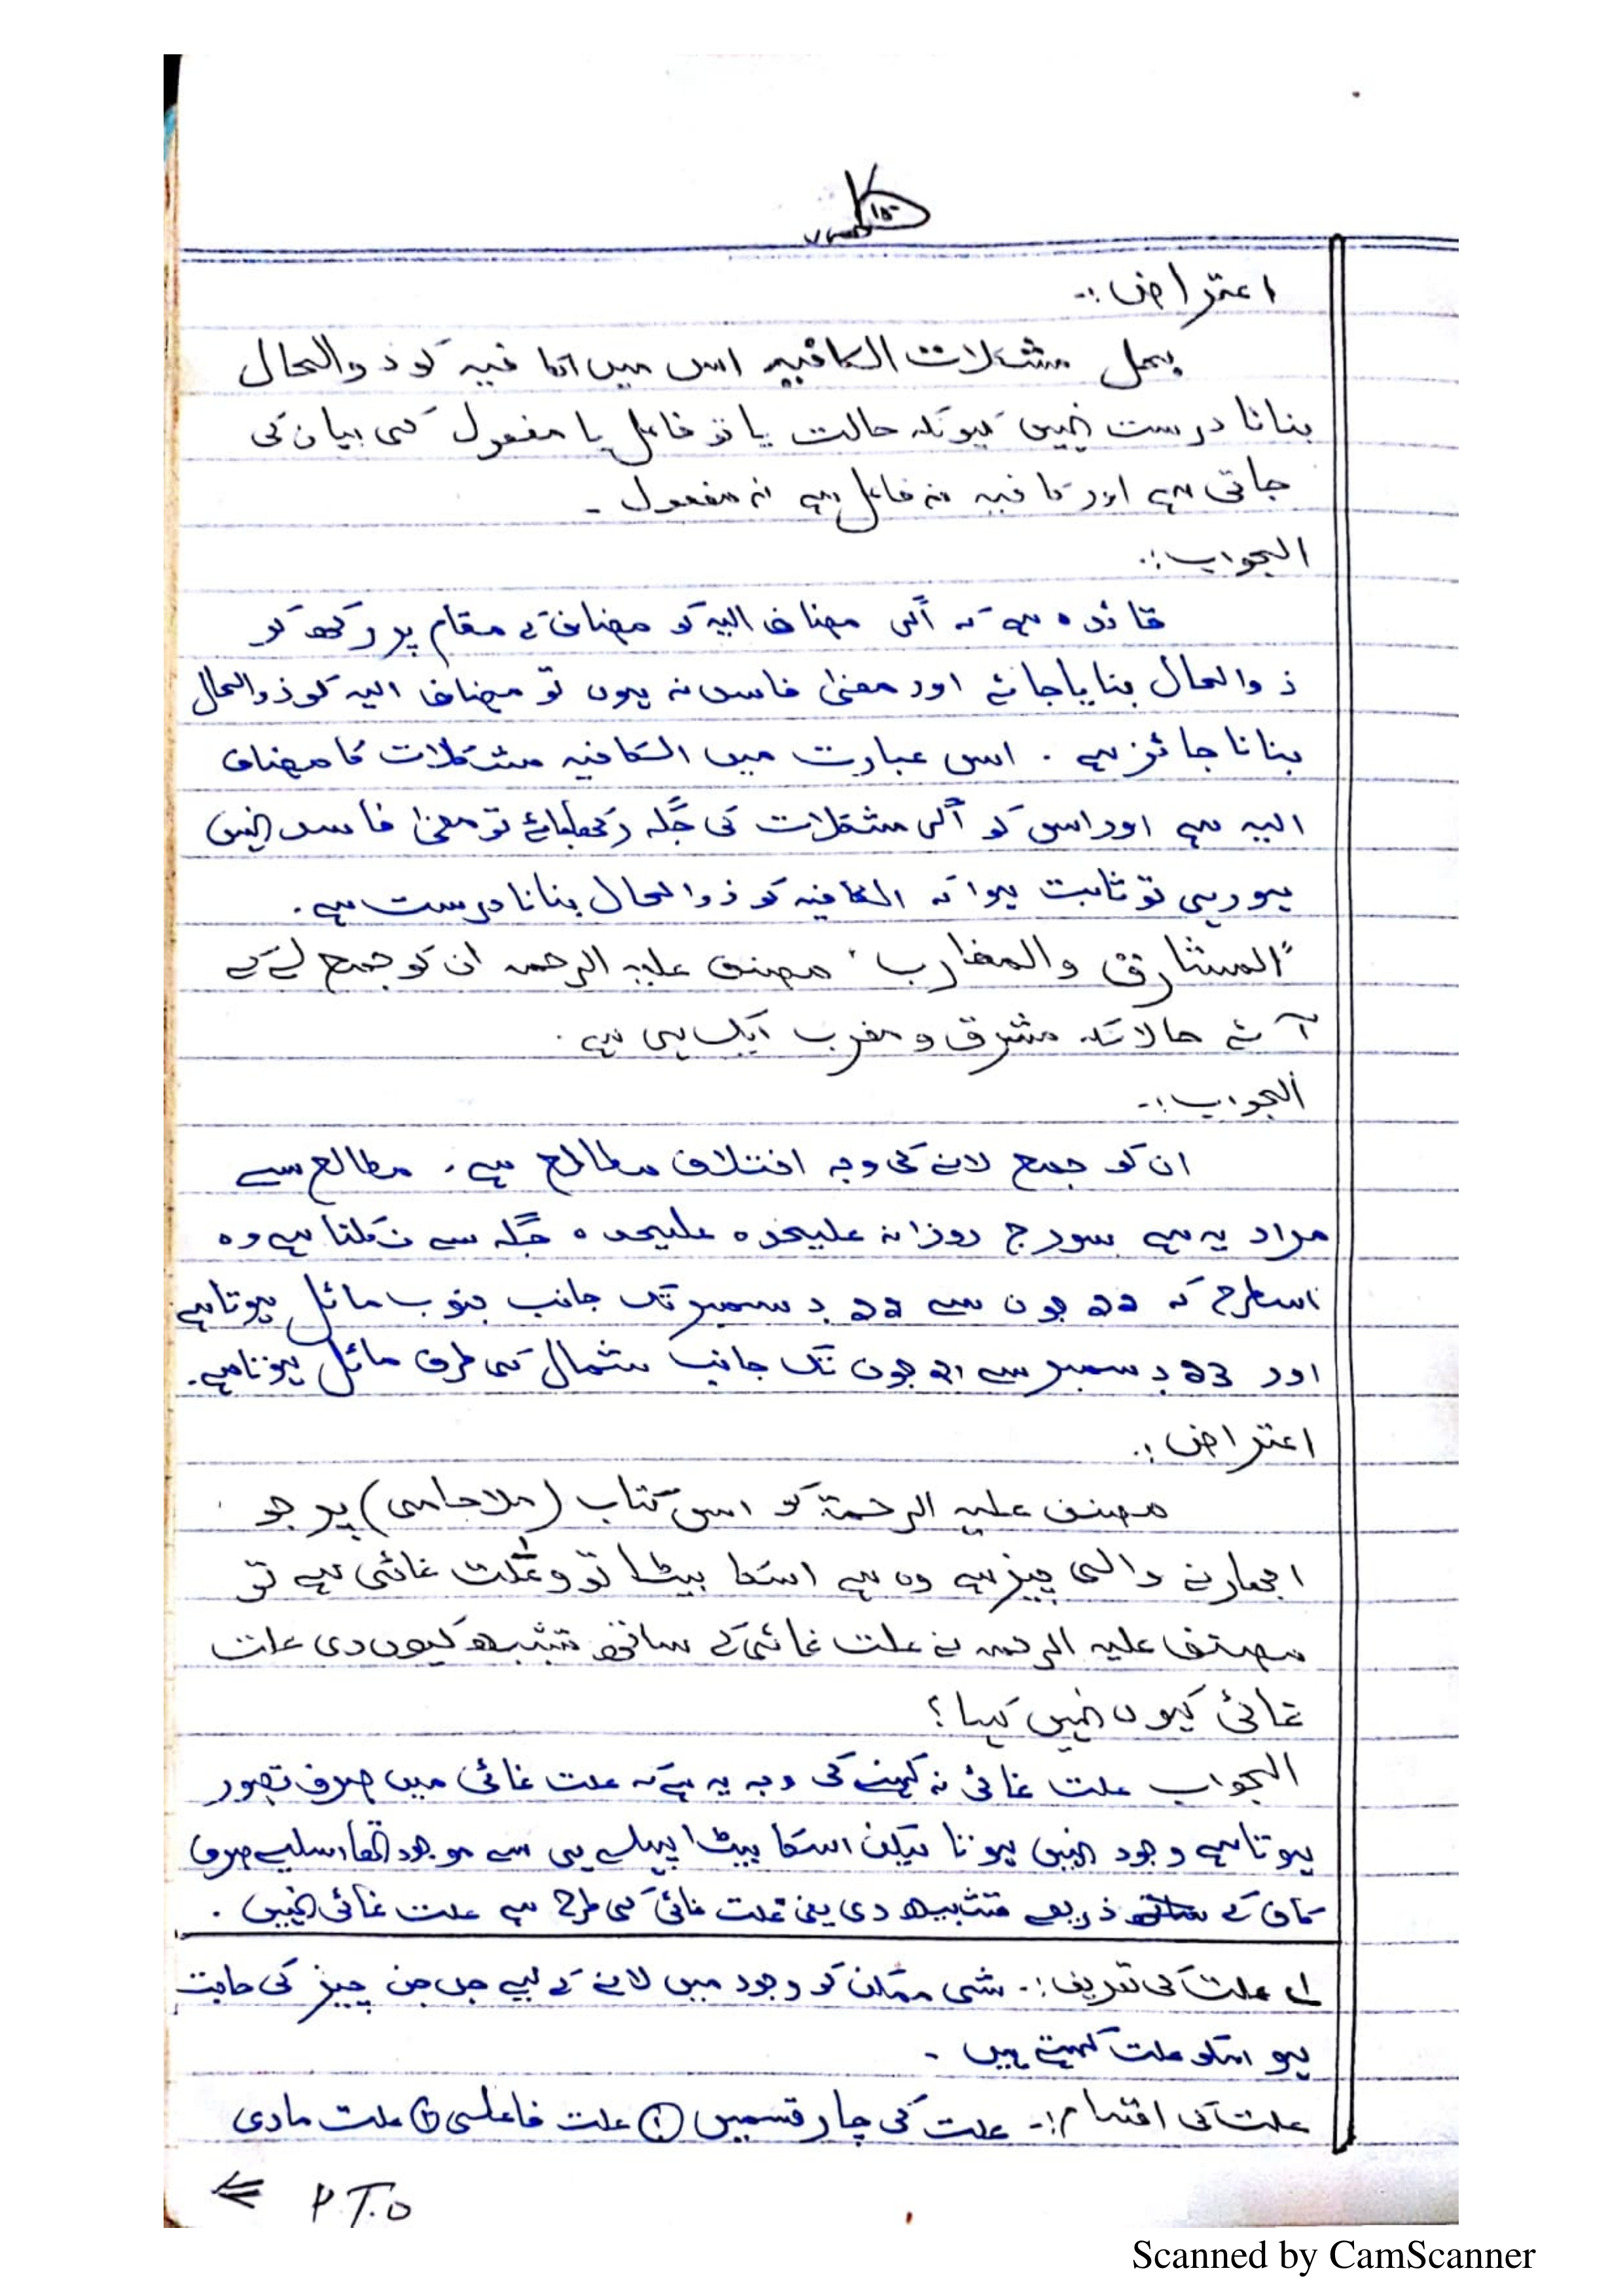 اعتراض :-
بحل مشکلات الکافیہ اس میں الکافیہ کو ذوالحال
بنانا درست نہیں کیونکہ حالت یا تو فاعل یا مفعول کی بیان کی
جاتی ہے اور کافیہ نہ فاعل ہے نہ مفعول ۔
الجواب :.
قائدہ ہے کہ اگر مضاف الیہ کو مضاف کے مقام پر رکھ کر
ذوالحال بنایا جائے اور معنیٰ فاسد نہ ہوں تو مضاف الیہ کو ذوالحال
بنانا جائز ہے . اس عبارت میں الکافیہ مشکلات کا مضاف
الیہ ہے اور اس کو اگر مشکلات کی جگہ رکھا جائے تو معنیٰ فاسد نہیں
ہو رہی تو ثابت ہوا کہ الکافیہ کو ذوالحال بنانا درست ہے .
"المشارق والمغارب" مصنف علیہ الرحمہ ان کو جمع لے کے
آئے حالانکہ مشرق و مغرب ایک ہی ہے .
الجواب :-
ان کو جمع لانے کی وجہ اختلاف مطالع ہے . مطالع سے
مراد یہ ہے سورج روزانہ علیحدہ علیحدہ جگہ سے نکلتا ہے وہ
اسطرح کہ 22 جون سے 22 دسمبر تک جانب جنوب مائل ہوتا ہے
اور 23 دسمبر سے 21 جون تک جانب شمال کی طرف مائل ہوتا ہے .
اعتراض :.
مصنف علیہ الرحمۃ کو اس کتاب (ملا جامی) پر جو
ابھارنے والی چیز ہے وہ ہے اسکا بیٹا تو و علت غائی ہے تو
مصنف علیہ الرحمہ نے علت غائی کے ساتھ تشبیھ کیوں دی علت
غائی کیوں نہیں کہا ؟
الجواب علت غائی نہ کہنے کی وجہ یہ ہے کہ علت غائی میں صرف تصور
ہوتا ہے وجود نہیں ہوتا لیکن اسکا بیٹا پہلے ہی سے موجود تھا اسلیے صرف
کاف کے ذریعے تشبیھ دی یعنی علت غائی کی طرح ہے علت غائی نہیں .
لے علت کی تعریف :- شی ممکن کو وجود میں لانے کے لیے جس جس چیز کی حاجت
ہو اسکو علت کہتے ہیں ۔
علت کی اقسام :- علت کی چار قسمیں ① علت فاعلی ② علت مادی
P.T.O
Scanned by CamScanner